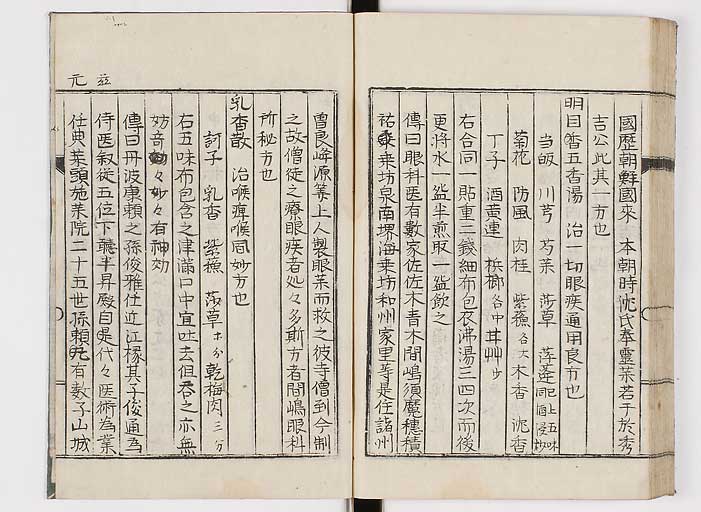 國歷朝鮮國來 本朝時沈氏奉靈菜若干於秀
吉公此其一方也
明目香五香湯 治一切眼疾通用良方也
當皈 川芎 芍菜 莎草 萍蓬
菊花 防風 肉桂 紫蘓各大木香 沈香
丁子 酒黄連 梹榔各中 甘艸少
右合同一貼重三錢細布包衣沸湯三四次而後
更将水一盌半煎取一盌飲之
傳曰眼科医有數家佐佐木青木間嶋須魔穗積
祐乗坊泉南堺海乗坊和州家里等是住諸州
曽良峰源筭上人製眼菜而救之彼寺僧到今制
之故僧徒之療眼疾者処々多斯方者間嶋眼科
所秘方也
乳香散 治喉痺喉風妙方也
訶子 乳香 紫蘓 莎草十分 乾梅肉三分
右五味布包含之津滿口中宜吐去但吞之亦無
妨音妙々有神効
傳曰丹波康頼之孫俊雅仕近江椽其子俊通為
侍医叙従五位下聽半昇殿自是代々医術為業
任典菜頭施菜院二十五世孫頼元有数子山城